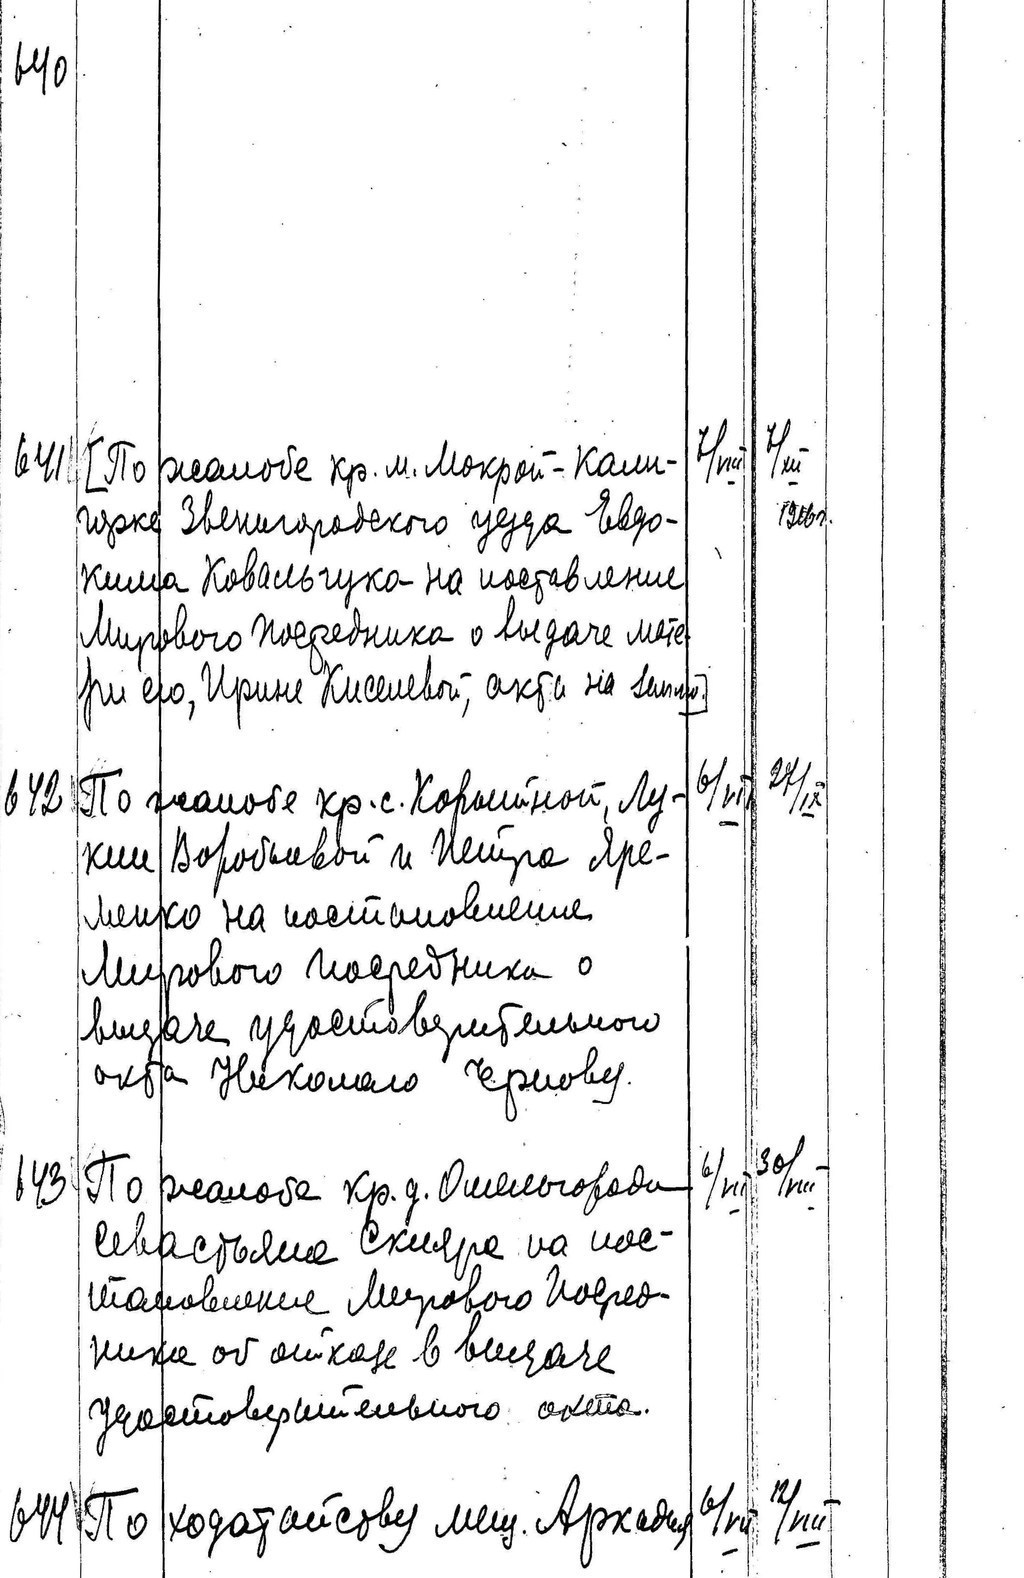 640
641 [По жалобе кр. м. Мокрой-Кали- 7/VIII 7/XII
горке Звенигородского уезда Евдо- 1906 г.
кима Ковальчука на поставление
Мирового Посредника о выдаче мате
ри его, Ирине Киселевой, акта на землю.]
642 По жалобе кр. с. Корытной, Лу- 6/VII 27/IX
кии Воробьевой и Петра Яре-
менко на постановление
Мирового Посредника о
выдаче удостоверительного
акта Николаю Чернову.
643 По жалобе кр. д. 6/VII 30/VIII
Севастьяна Скляра на пос-
тановление Мирового Посред-
ника об отказе в выдаче
удостоверительного акта.
644 По ходатайству мещ. Аркадия 6/VII 12/VIII